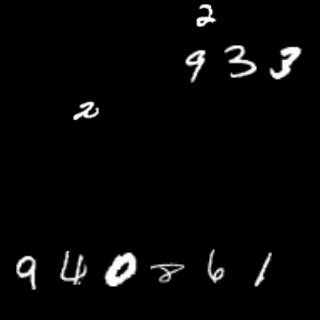 2
933
2
940861